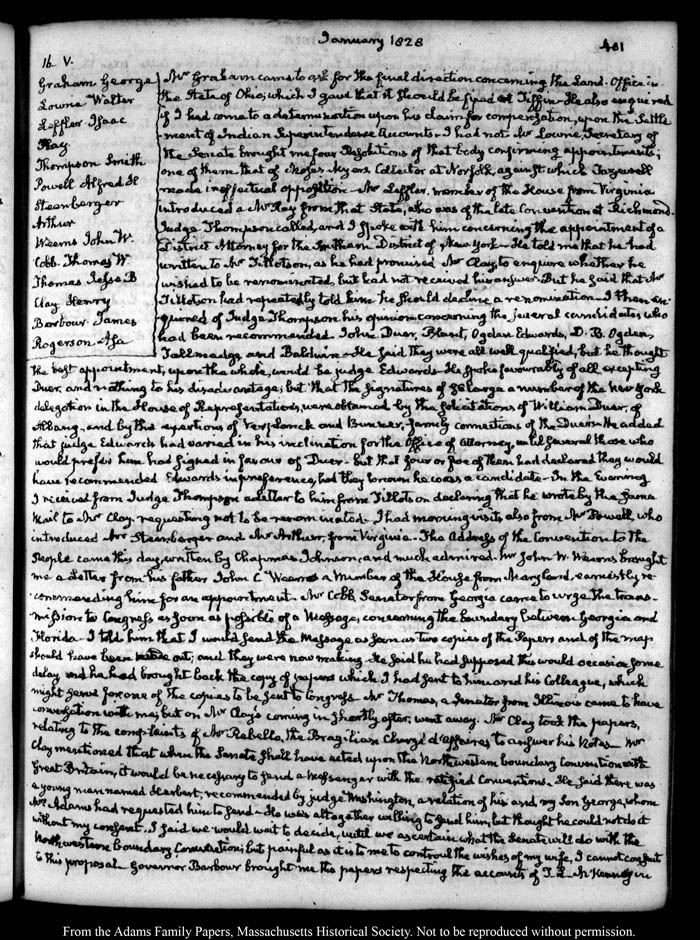 January 1828
401
16. V.
Graham George
Lowrie Walter
Leffler Isaac
Ray.
Thompson Smith
Powell Alfred H
Steenberger
Arthur
Weems John W.
Cobb. Thomas W
Thomas Jesse B
Clay Henry
Barbour James
Rogerson Asa
Mr Graham came to ask for the final direction concerning the Land-Office in
the State of Ohio; which I gave that it should be fixed at Tiffin. He also enquired
if I had come to a determination upon his claim for compensation, upon the Settle
-ment of Indian Superintendence Accounts. I had not. Mr Lowrie, Secretary of
the Senate brought me four Resolutions of that body confirming appointments;
one of them that of Moses Myers, Collector at Norfolk, against which Tazewell
made ineffectual opposition. Mr Leffler, member of the House from Virginia
introduced a Mr Ray from that State, who was of the late Convention at Richmond.
Judge Thompson called, and I spoke with him concerning the appointment of a
District Attorney for the Southern District of New York. He told me that he had
written to Mr Tillotson, as he had promised Mr Clay, to enquire whether he
wished to be renominated, but had not received his answer. But he said that Mr
Tillotson had repeatedly told him he should decline a renomination. I then en-
quired of Judge Thompson his opinion concerning the several candidates who
had been recommended. John Duer, Blunt, Ogden Edwards, D. B. Ogden,
Tallmadge and Baldwin. He said they were all well qualified, but he thought
the best appointment, upon the whole, would be judge Edwards. He spoke favourably of all excepting
Duer, and nothing to his disadvantage; but that the signatures of so large a number of the New York
delegation in the House of Representatives, were obtained by the solicitations of William Duer, of
Albany, and by the exertions of Verplanck and Bunner, family connections of the Duers. He added
that judge Edwards had varied in his inclination for the Office of Attorney, until several those who
would prefer him had signed in favour of Duer. but that four or five of them had declared they would
have recommended Edwards in preference, had they known he was a candidate. In the Evening
I received from Judge Thompson a letter to him from Tillotson declaring that he wrote by the same
Mail to Mr Clay, requesting not to be renominated. I had morning visits also from Mr Powell, who
introduced Mr Steenberger and Mr Arthur, from Virginia. The Address of the Convention to the
People came this day, written by Chapman Johnson, and much admired. Mr John W. Weems brought
me a Letter from his father John C Weems a Member of the House from Maryland, earnestly re-
commending him for an appointment. Mr Cobb, Senator from Georgia came to urge the trans-
mission to Congress as soon as possible of a Message, concerning the boundary between Georgia and
Florida. I told him that I would send the Message as soon as two copies of the Papers and of the map
should have been made out; and they were now making. He said he had supposed this would occasion some
delay and he had brought back the copy of papers which I had sent to him and his Colleague, which
might serve for one of the copies to be sent to Congress. Mr Thomas, a Senator from Illinois came to have
conversation with me; but on Mr Clay's coming in shortly after, went away. Mr Clay took the papers,
relating to the complaints of Mr Rebello, the Brazilian Chargé d'Affaires to answer his Notes. Mr
Clay mentioned that when the Senate shall have acted upon the Northwestern boundary Convention with
Great Britain, it would be necessary to send a Messenger with the ratified Conventions. He said there was
a young man named Herbert, recommended by judge Washington, a relation of his and my Son George, whom
Mrs Adams had requested him to send. He was altogether willing to send him, but thought he could not do it
without my consent. I said we would wait to decide, until we ascertain what the Senate will do with the
Northwestern boundary Convention; but painful as it is to me to controul the wishes of my wife, I cannot consent
to this proposal. Governor Barbour brought me the papers respecting the accounts of T. L. McKenney in
From the Adams Family Papers, Massachusetts Historical Society. Not to be reproduced without permission.